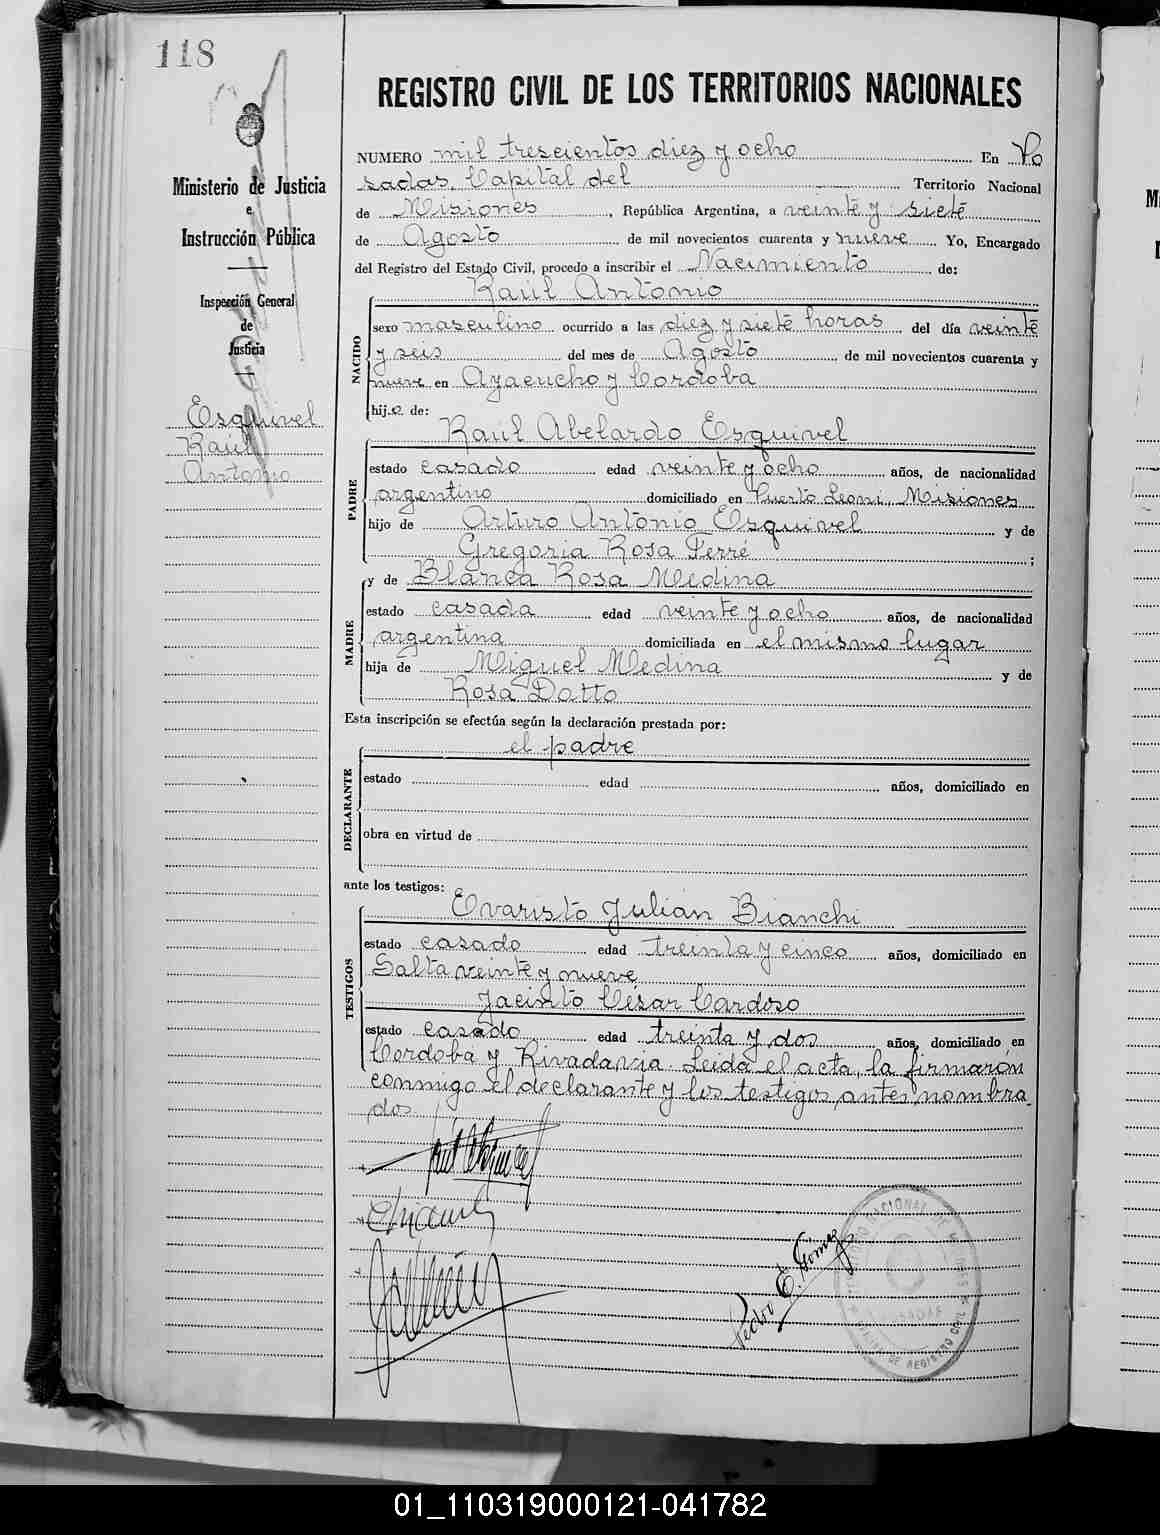 118
REGISTRO CIVIL DE LOS TERRITORIOS NACIONALES
Ministerio de Justicia
e
Instrucción Pública
Inspección General
de
Justicia
Esquivel
Raúl
Antonio
NUMERO mil trescientos diez y ocho En Po
sadas, Capital del Territorio Nacional
de Misiones, República Argentina, a veinte y siete
de Agosto de mil novecientos cuarenta y nueve Yo, Encargado
del Registro del Estado Civil, procedo a inscribir el Nacimiento de:
NACIDO
Raúl Antonio
sexo masculino ocurrido a las diez y siete horas del día veinte
y seis del mes de Agosto de mil novecientos cuarenta y
nueve en Ayacucho y Cordoba
hij.o. de:
PADRE
Raúl Abelardo Esquivel
estado casado edad veinte y ocho años, de nacionalidad
argentino domiciliado en Puerto Leoni, Misiones
hijo de Arturo Antonio Esquivel y de
Gregoria Rosa Ferré ;
MADRE
y de Blanca Rosa Medina
estado casada edad veinte y ocho años, de nacionalidad
argentina domiciliada en el mismo lugar
hija de Miguel Medina y de
Rosa Datto
Esta inscripción se efectúa según la declaración prestada por:
DECLARANTE
el padre
estado edad años, domiciliado en
obra en virtud de
ante los testigos:
TESTIGOS
Evaristo Julián Bianchi
estado casado edad treinta y cinco años, domiciliado en
Salta veinte y nueve
Jacinto César Cardoso
estado casado edad treinta y dos años, domiciliado en
Cordoba y Rivadavia. Leida el acta, la firmaron
conmigo el declarante y los testigos antes nombra
dos.
Pedro E. Gómez
01_110319000121-041782